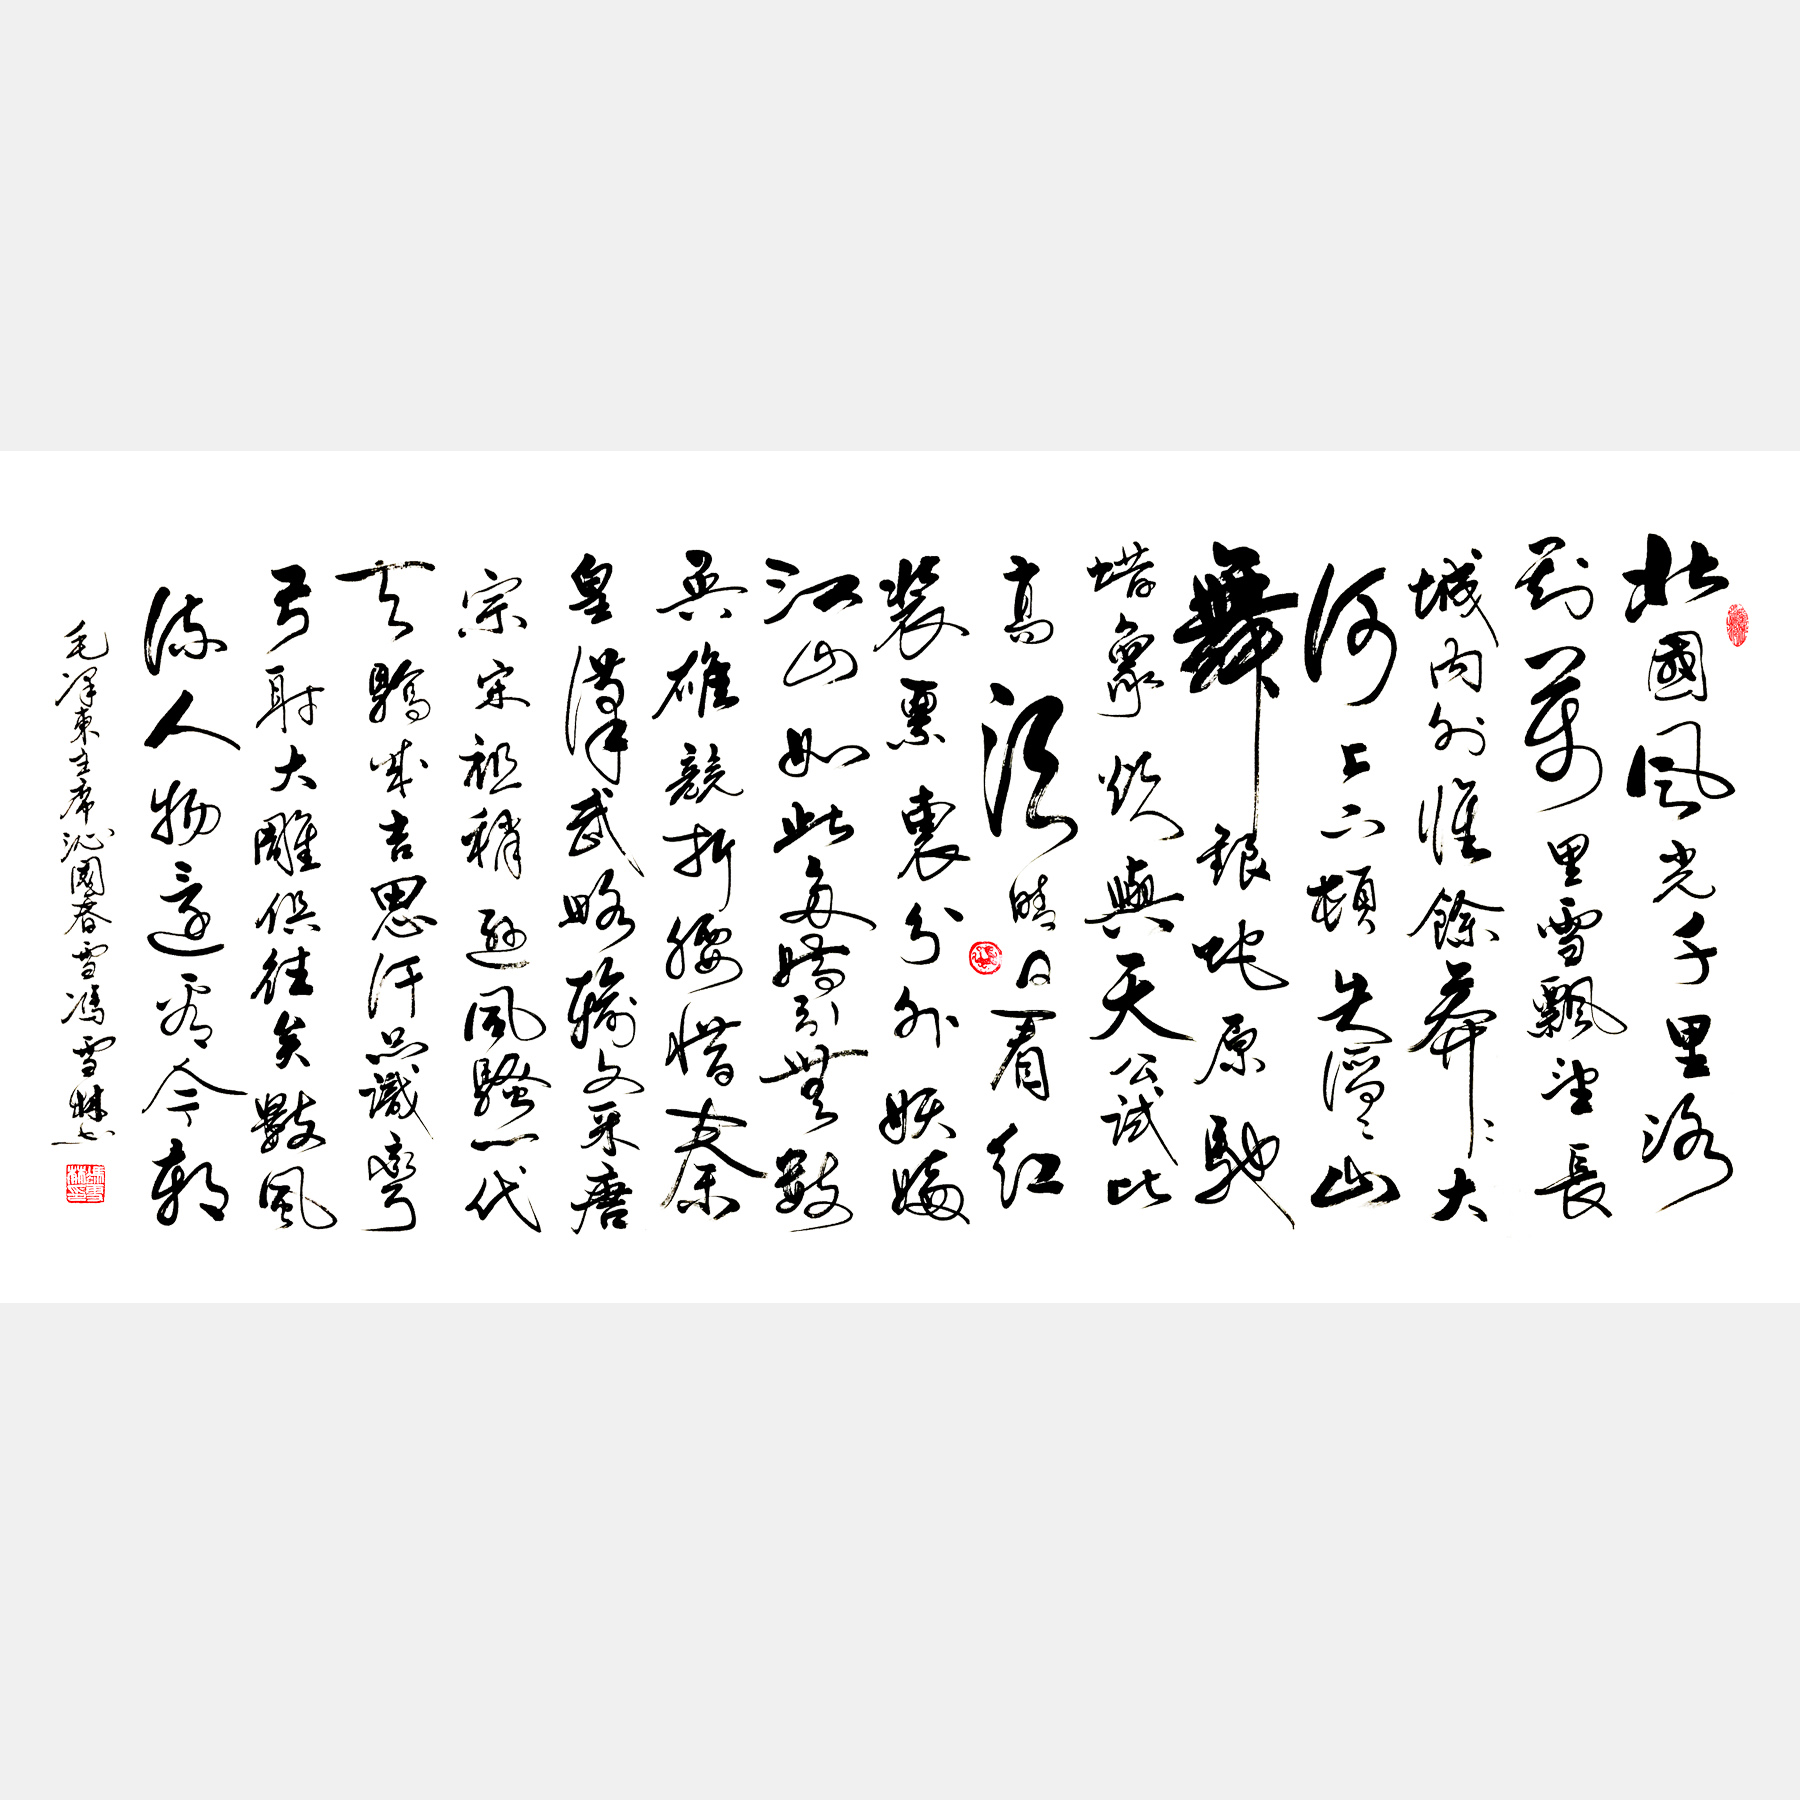 北國風光千里冰
封萬里雪飄望長
城内外惟餘莽々大
河上下頓失滔々山
舞銀蛇原馳
蠟象欲與天公試比
高須晴日看紅
裝素裹分外妖嬈
江山如此多嬌引無數
英雄競折腰惜秦
皇漢武略輸文采唐
宗宋祖稍遜風騷一代
天驕成吉思汗只識彎
弓射大雕俱往矣數風
流人物還看今朝
毛澤東主席沁園春雪馮雪林書